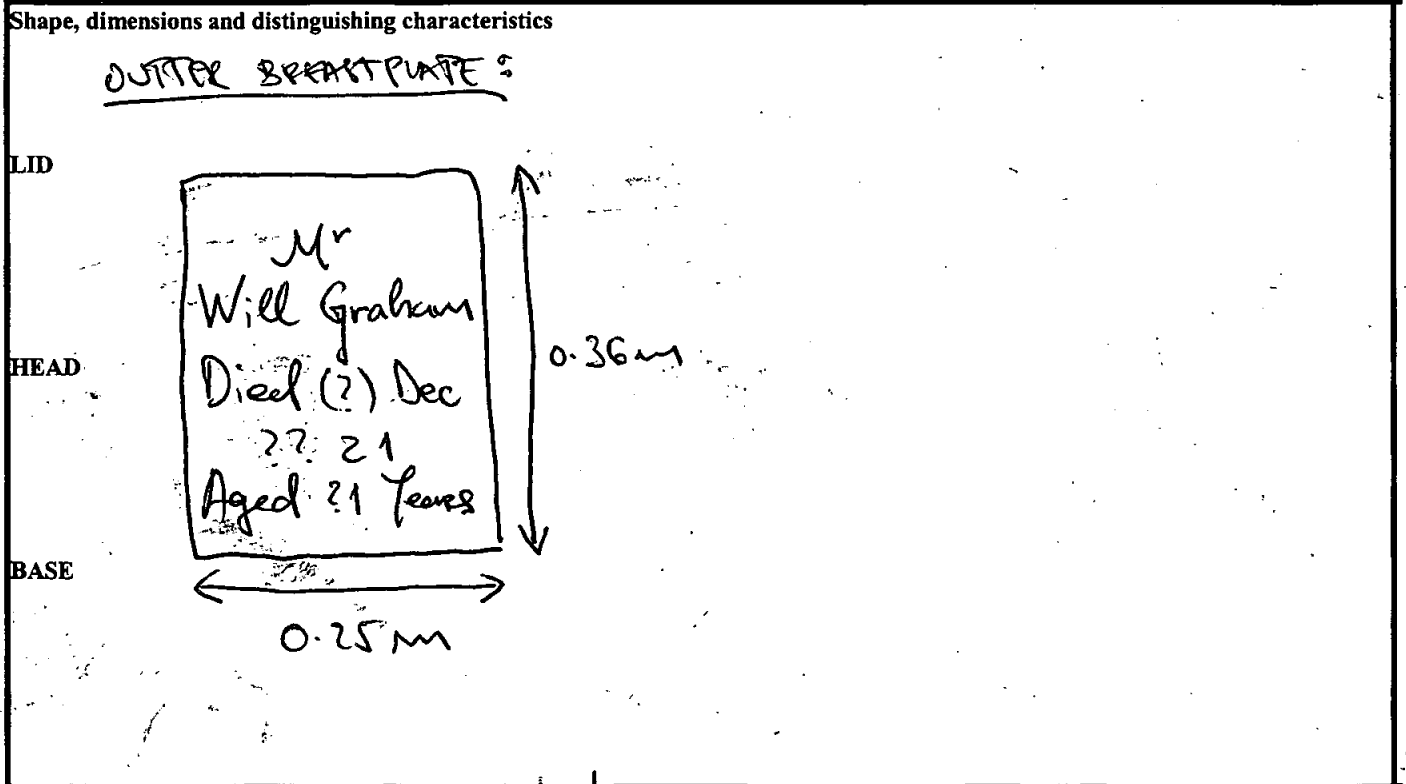 Shape, dimensions and distinguishing characteristics
OUTTER BREASTPLATE:
LID
Mr
Will Graham
HEAD
0.36m
Died (?) Dec
?? 21
Aged ?1 Years
BASE
0.25m